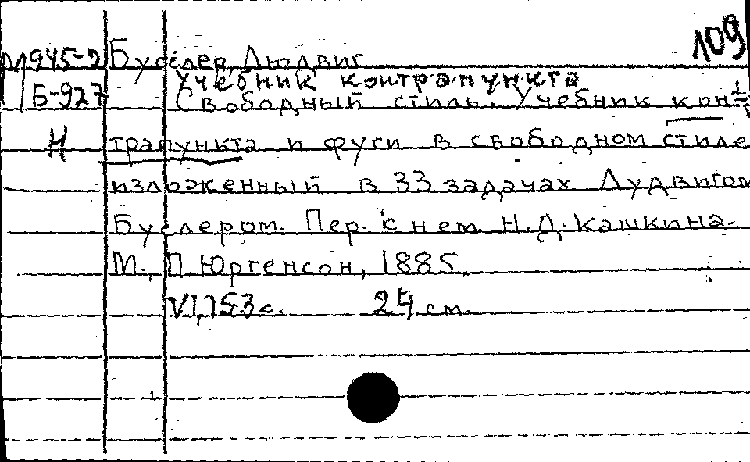 109
М945-2 Бусслер, Людвиг
Учебник контрапункта
Б-927 Свободный стиль. Учебник кон-
Н трапункта и фуги в свободном стиле
изложенный в 33 задачах Лудвигом
Бусслером. Пер. с нем. Н.Д. Кашкина.
М., П. Юргенсон, 1885.
VI, 153 с. 24 см.